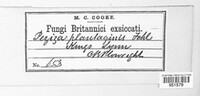 M. C. COOKE.
Fungi Britannici exsiccati.
Peziza plantaginis Fckl
Kings Lynn
C.B. Plowright
No. 653
951579